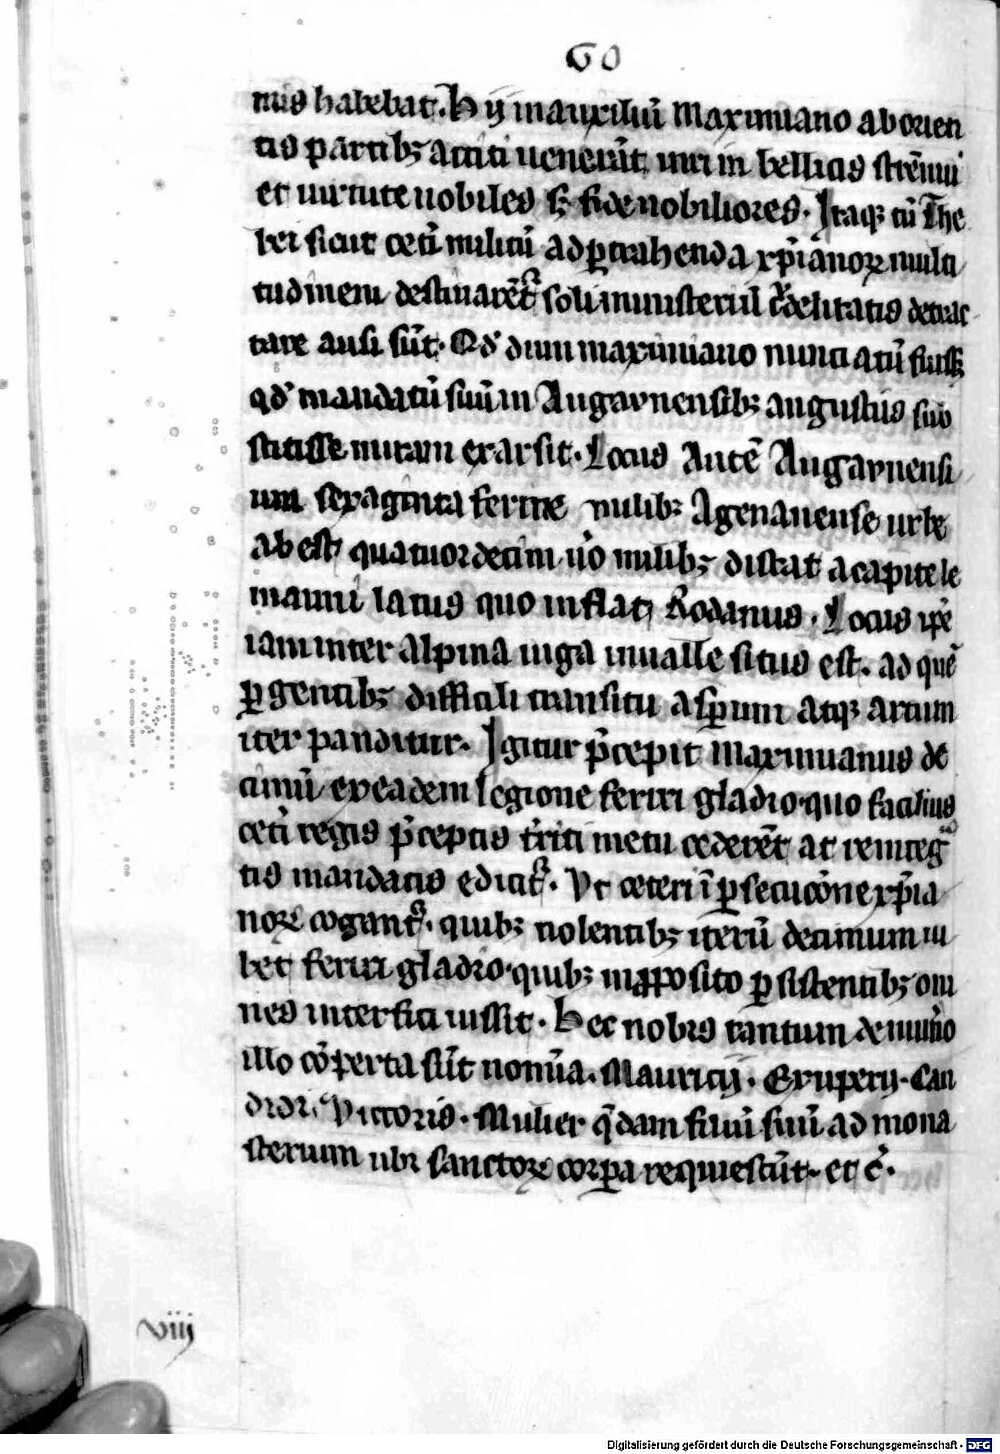 60
mus habebat. Hij in auxiliū Maximiano ab orien
tis partibꝫ acciti uenerāt uiri in bellicis strēnui
et uirtute nobiles sꝫ fide nobiliores. Itaqꝫ cū The
bei sicut cet̄i militū ad ꝑtrahenda xp̄ianoꝝ multi
tudinem destinarēt᷑ soli ministeriū c̄delitatis detrac
tare ausi sūt. Qd̕ dum maximiano nunciatū fuiss;
qd̕ mandatū suū in Augaunensibꝫ angustiis sub
stitisse in iram exarsit. Locus Autē Augaunensi
um sexaginta ferme milibꝫ Agenanense urbe
abest quatuordecim u̕o milibꝫ distat a capite le
manni lacus quo influit Rodanus. Locus ip̄e
iam inter alpina iuga in ualle situs est. ad quē
ꝑgentibꝫ difficili transitu asꝑum atqꝫ artum
iter panditur. Igitur p̄cepit Maximianus de
cimū ex eadem legione feriri gladio quo facilius
cet̄i regis p̄ceptis t̄riti metu cederēt at reiterā
tis mandatis edicit᷑. Vt ceteri ī ꝑsecucōne xp̄ia
noꝝ cogant᷑. quibꝫ nolentibꝫ iterū decimum iu
bet feriri gladio quibꝫ in ꝓposito ꝑsistentibꝫ om
nes interfici iussit. Hec nobis tantum de nūo
illo cōperta sūt nomīa. Mauricij. Exuperij. Can
didi. Victoris. Mulier q̄dam filiū suū ad mona
sterium ubi sanctoꝝ corꝑa requiescūt et c̄.
viij
Digitalisierung gefördert durch die Deutsche Forschungsgemeinschaft - DFG